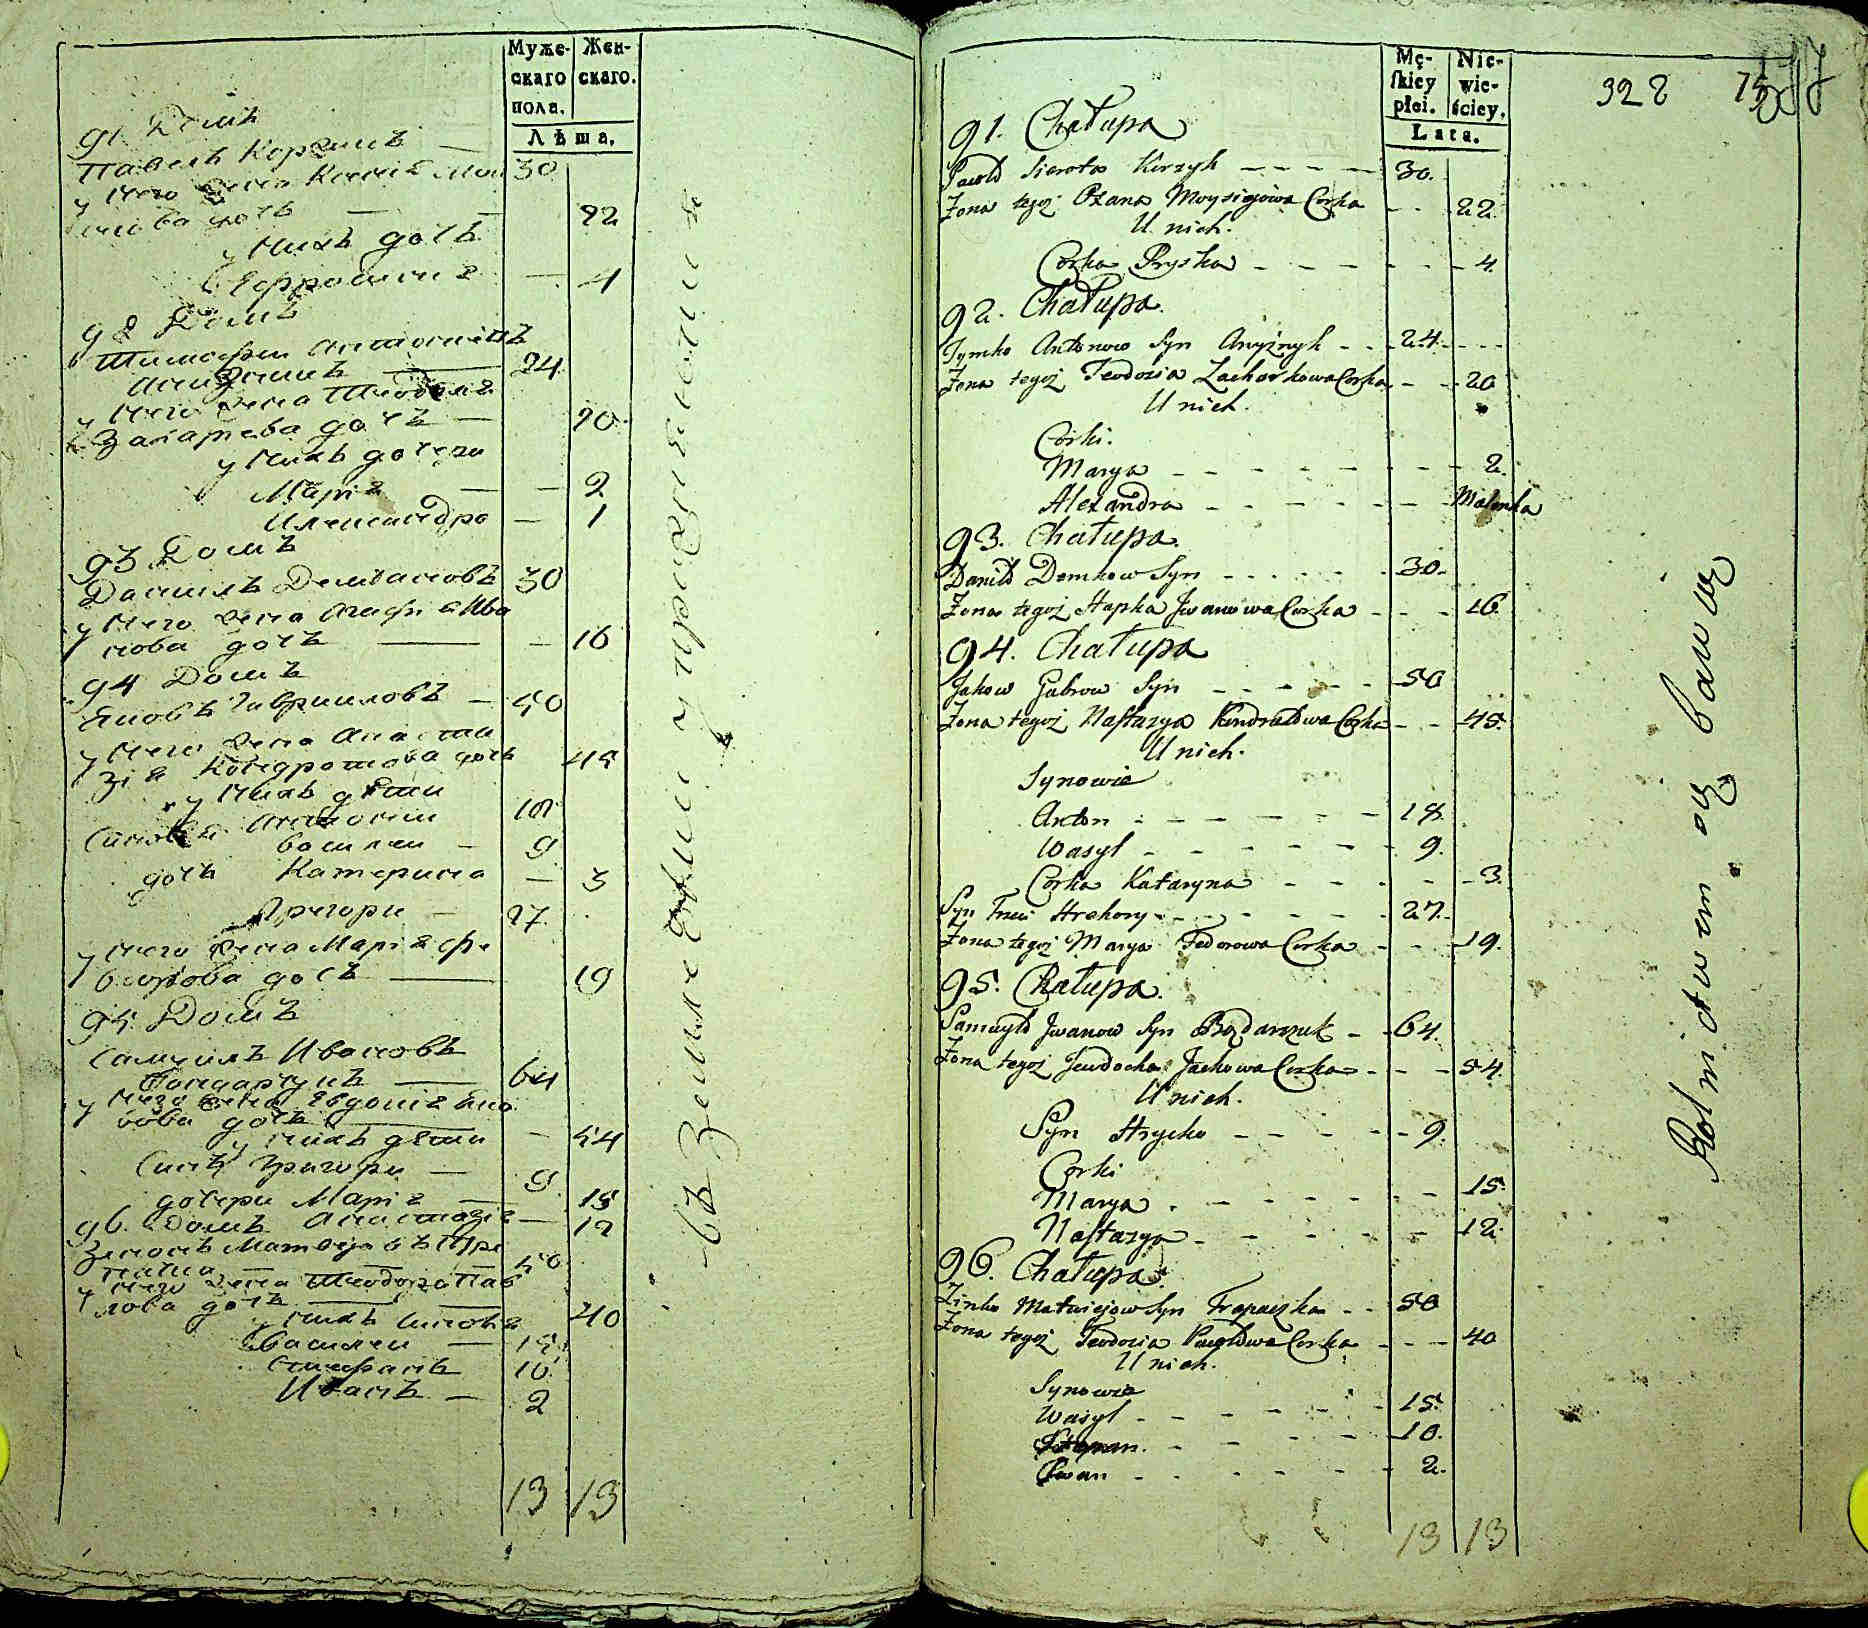 Муже-
скаго
пола.
Жен-
скаго.
Лѣта.
91 Домъ
Павелъ Корзилъ — 30
у него жена Ксенія Мои
сиева дочъ — 22
у нихъ дочъ
Ефросинія — 4
92 Домъ
Тимофеи Антоновъ
— 24
у него жена Теодозія
Захарчева дочъ — 20
у нихъ дочери
Марія — 2
Александра — 1
93 Домъ
Данилъ Демяновъ 30
у него жена Агафія Ива
нова дочъ — 16
94 Домъ
Яковъ Гавриловъ — 50
у него жена Анаста
зія Кондратова дочъ 45
у нихъ дѣти
Синовя Антонии 18
Василеи — 9
дочъ Катерина — 3
Григори — 27
у него жена Марія Фе
дорова дочъ — 19
95 Домъ
Самуилъ Ивановъ
Бондарчукъ — 64
у него жена Евдокія Яко
вова дочъ — 54
у нихъ дѣти
Синъ Григори — 9
дочери Марія — 15
Анастазія — 12
96. Домъ
Зинонъ Матвѣовъ Тра
пачка — 50
у него жена Теодора Пав
лова дочъ — 40
у нихъ синовя
Василеи — 15
Стефанъ 10
Иванъ — 2
13 13
въ земледѣлии упражняются
Mę-
skiey
płci.
Nie-
wie-
ściey.
Lata.
328
91. Chałupa
Pawło Sierota Korzyk - - - - 30.
Żona tegoż Oxana Moysiejowa Corka - - 22
U nich.
Corka Pryska - - - - - - 4.
92. Chałupa.
Tymko Antonow Syn - - 24 - - -
Żona tegoż Teodozia Zacharkowa Corka - - 20
U nich.
Corki.
Marya - - - - - - - - 2.
Alexandra - - - - - - Malenka
93. Chałupa.
Daniło Demkow Syn - - - - - - 30.
Żona tegoż Hapka Jwanowa Corka - - - 16
94. Chałupa
Jakow Gabrow Syn - - - - - 50
Żona tegoż Nastazya Kondratowa Corka - - 45.
U nich.
Synowie
Anton - - - - - - 18.
Wasyl - - - - - - 9.
Corka Katarzyna - - - - - 3.
Syn Trzeci Hrehory - - - - - - 27.
Żona tegoż Marya Fedorowa Corka - - - 19.
95. Chałupa.
Samuyło Jwanow Syn Bodarczuk - - 64.
Żona tegoż Jewdocha Jackowa Corka - - - 54.
U nich.
Syn Hrycko - - - - - 9.
Corki
Marya - - - - - - - 15.
Nastazya - - - - - - 12.
96. Chałupa.
Zinko Matwiejow Syn Trapaczka - - 50
Żona tegoż Teodozia Pawłowa Corka - - - 40
U nich.
Synowie
Wasyl - - - - - - 15.
Stepan. - - - - - 10.
Jwan - - - - - - 2.
13 13
Rolnictwem się bawią